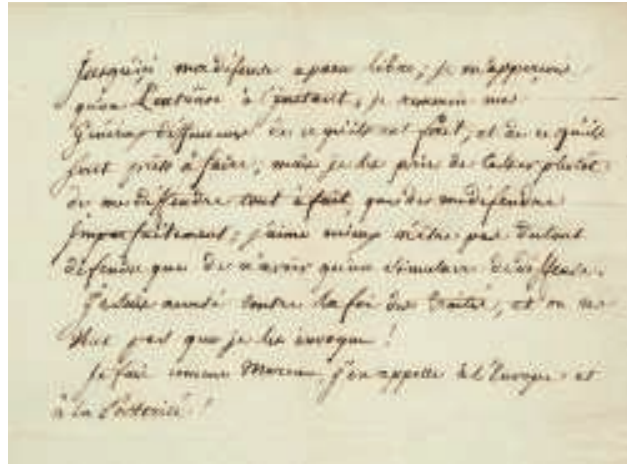 Jusqu'ici ma défense a paru libre; je m'apperçois
qu'on l'entrave à l'instant, je remercie mes
Généreux deffenseurs de ce qu'ils ont fait, et de ce qu'ils
sont prêts à faire; mais je les prie de cesser plutôt
de me deffendre tout à fait que de me défendre
Imparfaitement; j'aime mieux n'être pas du tout
défendu que de n'avoir qu'un simulacre de deffense.
Je suis arrêté contre la foi des traités, et on ne
veut pas que je les invoque!
Je fais comme Moreau j'en appelle à l'Europe et
à la Postérité!